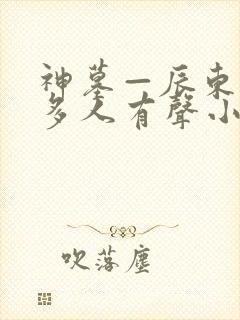 神墓—辰東
多人有聲小
吹落塵